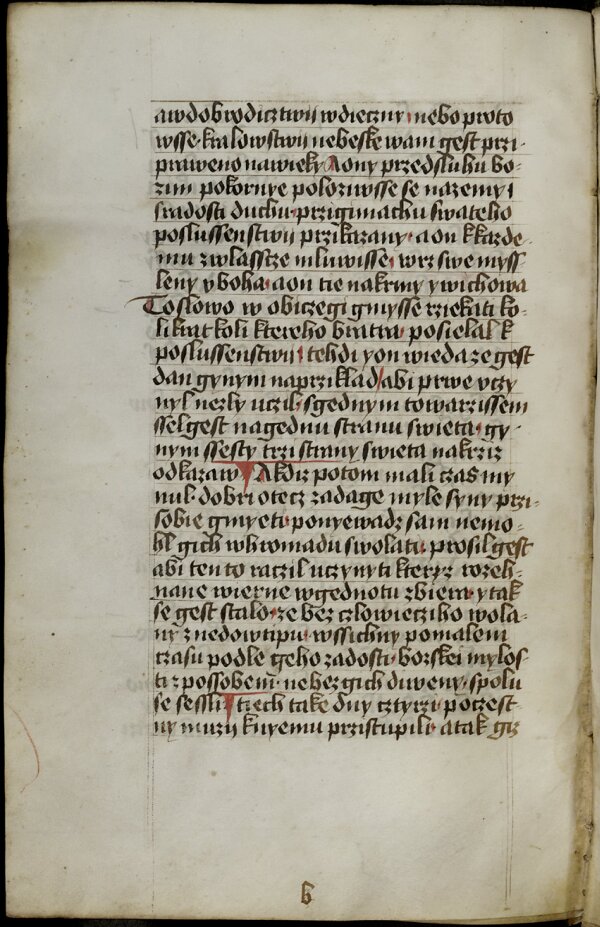 awdobrodicztwij wdieczny nebo proto
wsse kralowstwij nebeske wam gest przi
praweno nawieky Aony przedsluhu bo-
zim pokornye polozuwsse se nazemy i
sradosti duchu przigimachu swateho
poslussenstwij przikazany aon kkazde-
mu zwlasscze mluwisse wrz swe myss
leny yboha aon tie nakrmy ywichowa
Toslowo wobiczegi gmysse rziekati ko-
likratkoli ktereho bratra posielal k
poslussenstwij tehdi yon wieda ze gest
dan gynym naprziklad abi prwe vczy
nyl nezly uczil sgednym towarzissem
sselgest nagednu stranu swieta gy-
nym ssesty trzi strany swieta nakrziz
odkazaw Akdiz potom mali czas my
nul dobri otecz zadage myle syny przi-
sobie gmyeti ponyewadz sam nemo-
hl gich whromadu swolati prosil gest
abi ten to raczil uczynyti kteryz rozeh-
nane wierne wgednotu zbiera ytak
se gest stalo ze bez czlowiecziho wola-
ny znedowtipu wssichny pomalem
czasu podle geho zadosti bozskei mylos
ti zpossobem nebez gich duweny spolu
se sessli tiech take dny cztyrzi poczest-
ny muzij knyemu przistupili atak giz
6